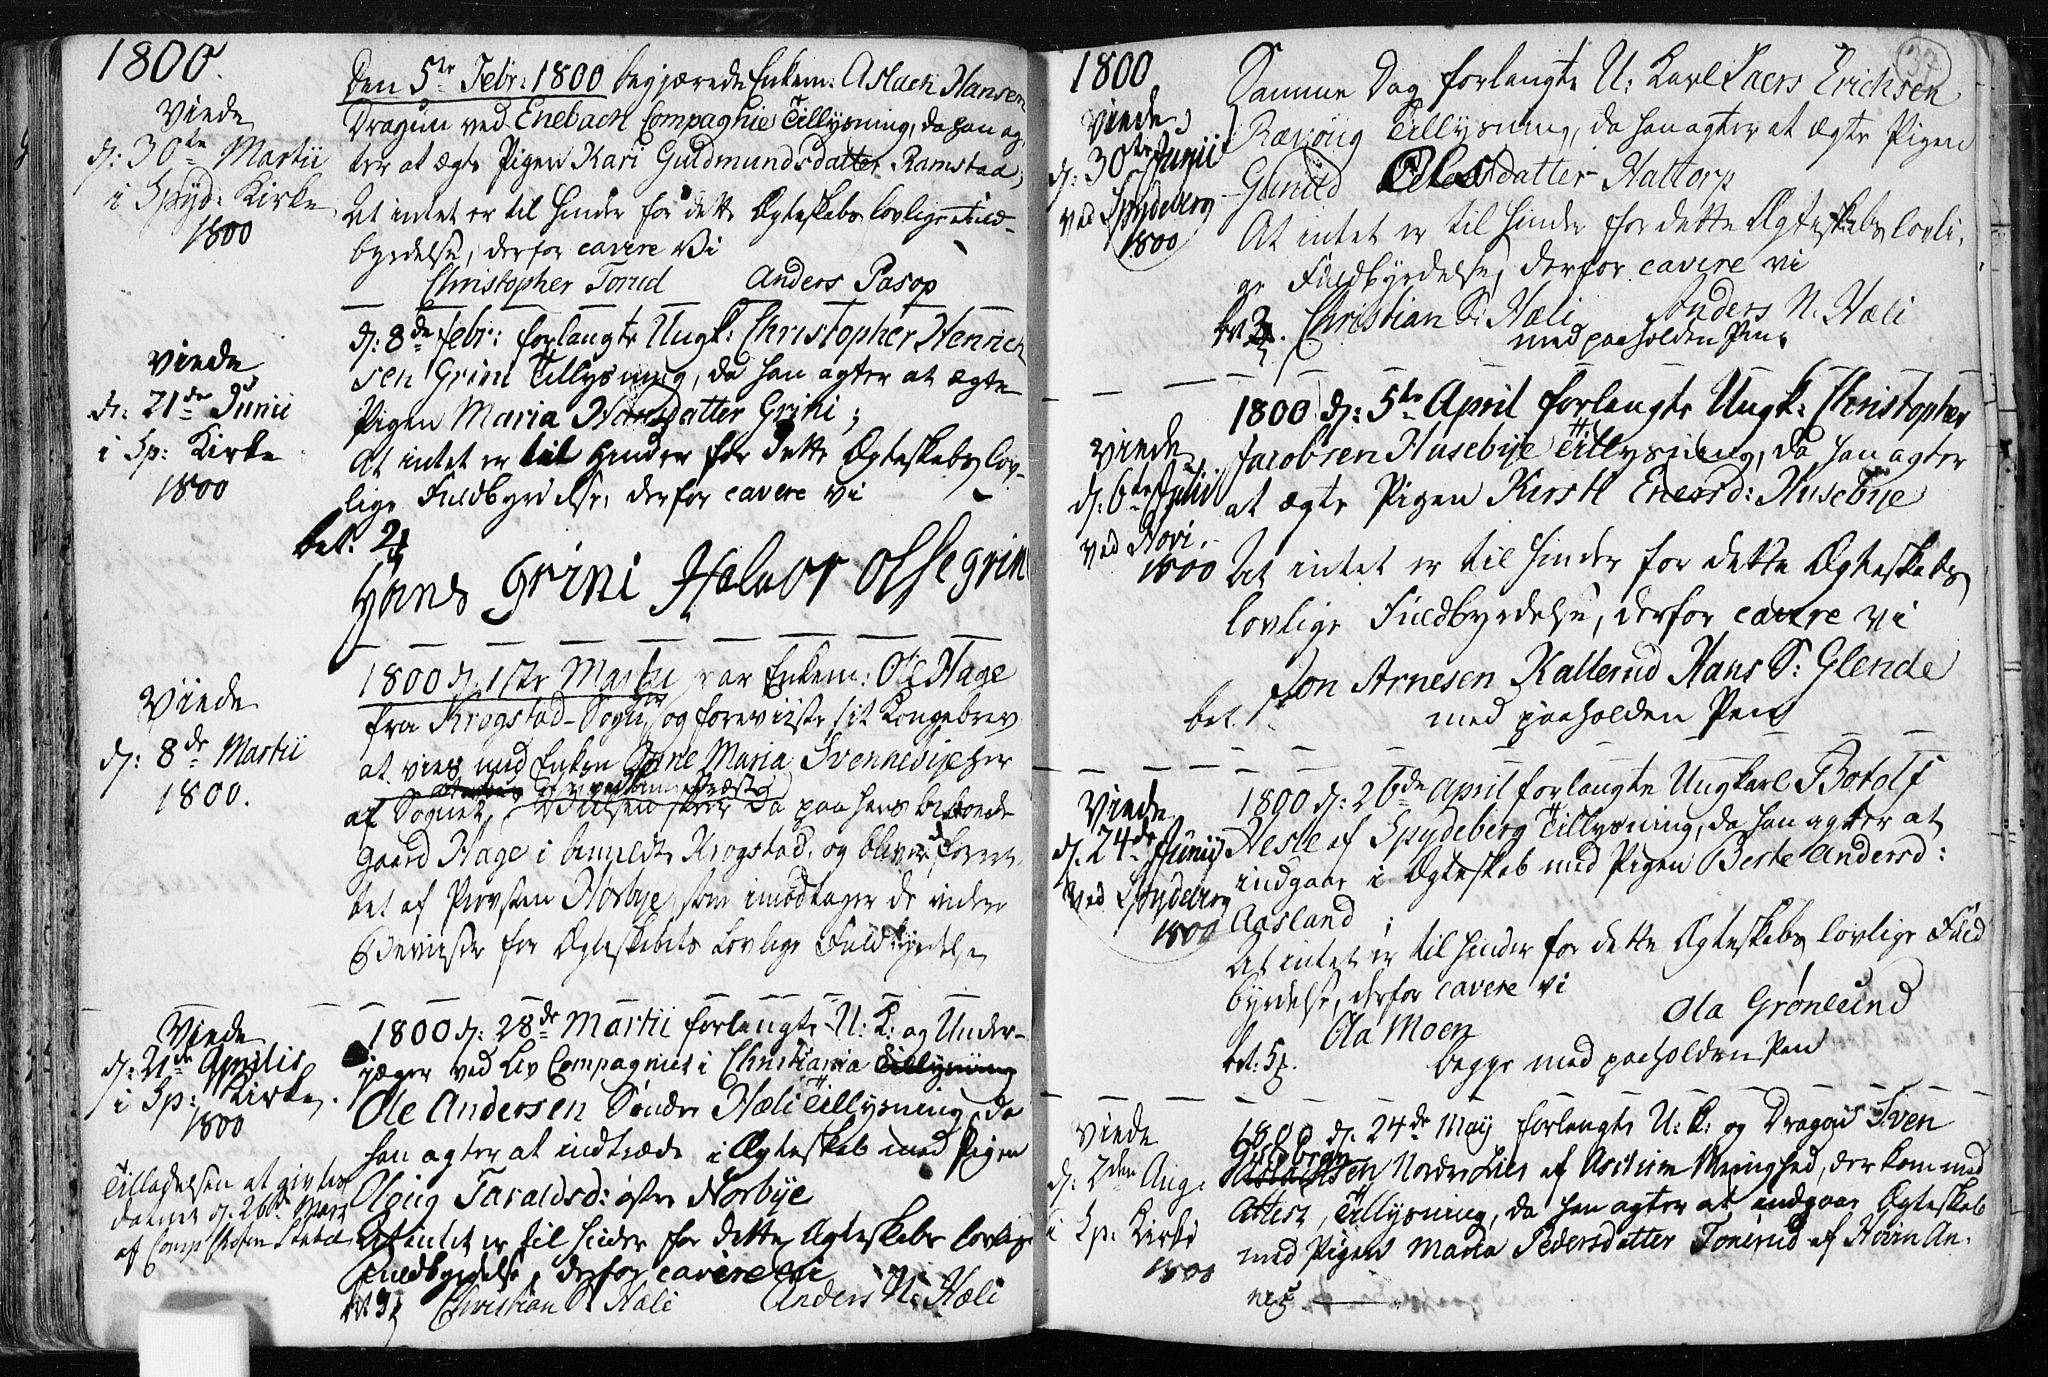 1800.
Viede
d: 30te Martii
i Spyd: Kirke
1800
Den 5te Febr: 1800 begjærede Enkem: Aslach Hansen
Dragun ved Enebach Compagnie Tillysning, da han ag-
ter at ægte Pigen Kari Guldmundsdatter Ramstad;
At intet er til Hinder for dette Ægteskabs lovlige Fuld-
byrdelse, derfor cavere Vi
Christopher Torud Anders Pasop
Viede
d: 21de Junii
i Sp: Kirke
1800
d: 8de Febr: forlangte Ungk: Christopher Henrich
sen Grini Tillysning, da han agter at ægte
Pigen Maria Hansdatter Grini;
At intet er til Hinder for dette Ægteskabs lov-
lige Fuldbyrdelse, derfor cavere Vi
bet. 2
Hans Grini Halvor Olsegrin
Viede
d: 8de Martii
1800.
1800 d. 1ste Martii var Enkem: Ole Hage
fra Krogstad-Sogn, og foreviiste sit Kongebrev
at vies med Enken Anne Maria Svennebye her
af Sognet, Vielsen skeer da paa hans beboede
Gaard Hage i bemeldte Krogstad, og bliver forret-
tet af Provsten Norbye, som imodtager de videre
Beviiser for Ægteskabets Lovlige Fuldbyrdelse
Viede
d: 21de Aprilis
i Sp: Kirke.
1800
Tilladelsen at givtes
dateret d. 26de Mart
af Comp: Chefen Stabel
1800 d: 28de Martii forlangte U: K: og Under-
jæger ved Liv Compagniet i Christiania Tillysning
Ole Andersen Søndre Hæli Tillysning, da
han agter at indtræde i Ægteskab med Pigen
Taraldsd: østre Norbye
At intet er til Hinder for dette Ægteskabs lovlige
Fuldbyrdelse, derfor cavere vi
bet 3 Christian S Hæli Anders N: Hæli
37
1800
Viede
d: 30te Junii
ved Spydeberg
1800
Samme Dag forlangte U: Karl Laers Erichsen
Ræwøug Tillysning, da han agter at ægte Pigen
Gunild Olesdatter Haltorp
At intet er til Hinder for dette Ægteskabs lovli-
ge Fuldbyrdelse, derfor cavere vi
bet 2. Christian S: Hæli Anders N. Hæli
med paaholden Pen.
Viede
d: 6te Julii
ved Hovi.
1800
1800 d: 5te April forlangte Ungk: Christopher
Jacobsen Husebye Tillysning, da han agter
at ægte Pigen Kirsti Enersd: Husebye
At intet er til Hinder for dette Ægteskabs
lovlige Fuldbyrdelse, derfor cavere vi
Jon Arnesen Kallerud Hans S: Glende
bet. 1 med paaholden Pen
Viede
d. 24de Junij
ved Spydeberg
1800
1800 d: 26de April forlangte Ungkarl Botolf
Hesle af Spydeberg Tillysning, da han agter at
indgaae i Ægteskab med Pigen Berte Andersd:
Aasland;
At intet er til Hinder for dette Ægteskabs lovlige Fuld
byrdelse, derfor cavere vi
Ola Moen Ola Grønlund
bet: 5. begge med paaholden Pen
Viede
d: 7den Aug:
i Sp: Kirke
1800
1800 d: 24de May forlangte U: K: og Dragon Sven
Gulbran
sen Nordre Lier af Menighed, der kom med
Attest, Tillysning, da han agter at indgaae Ægteskab
med Pigen Maria Pedersdatter Tonerud af Hovin An-
nex